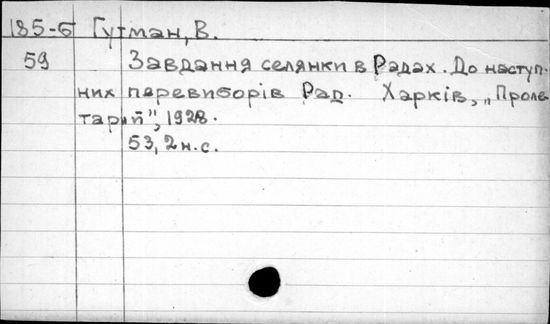 185-б Гутман, В.
59 Завдання селянки в Радах. До наступ-
них перевиборів Рад. Харків, „Проле-
тарий", 1928.
53, 2 н. с.